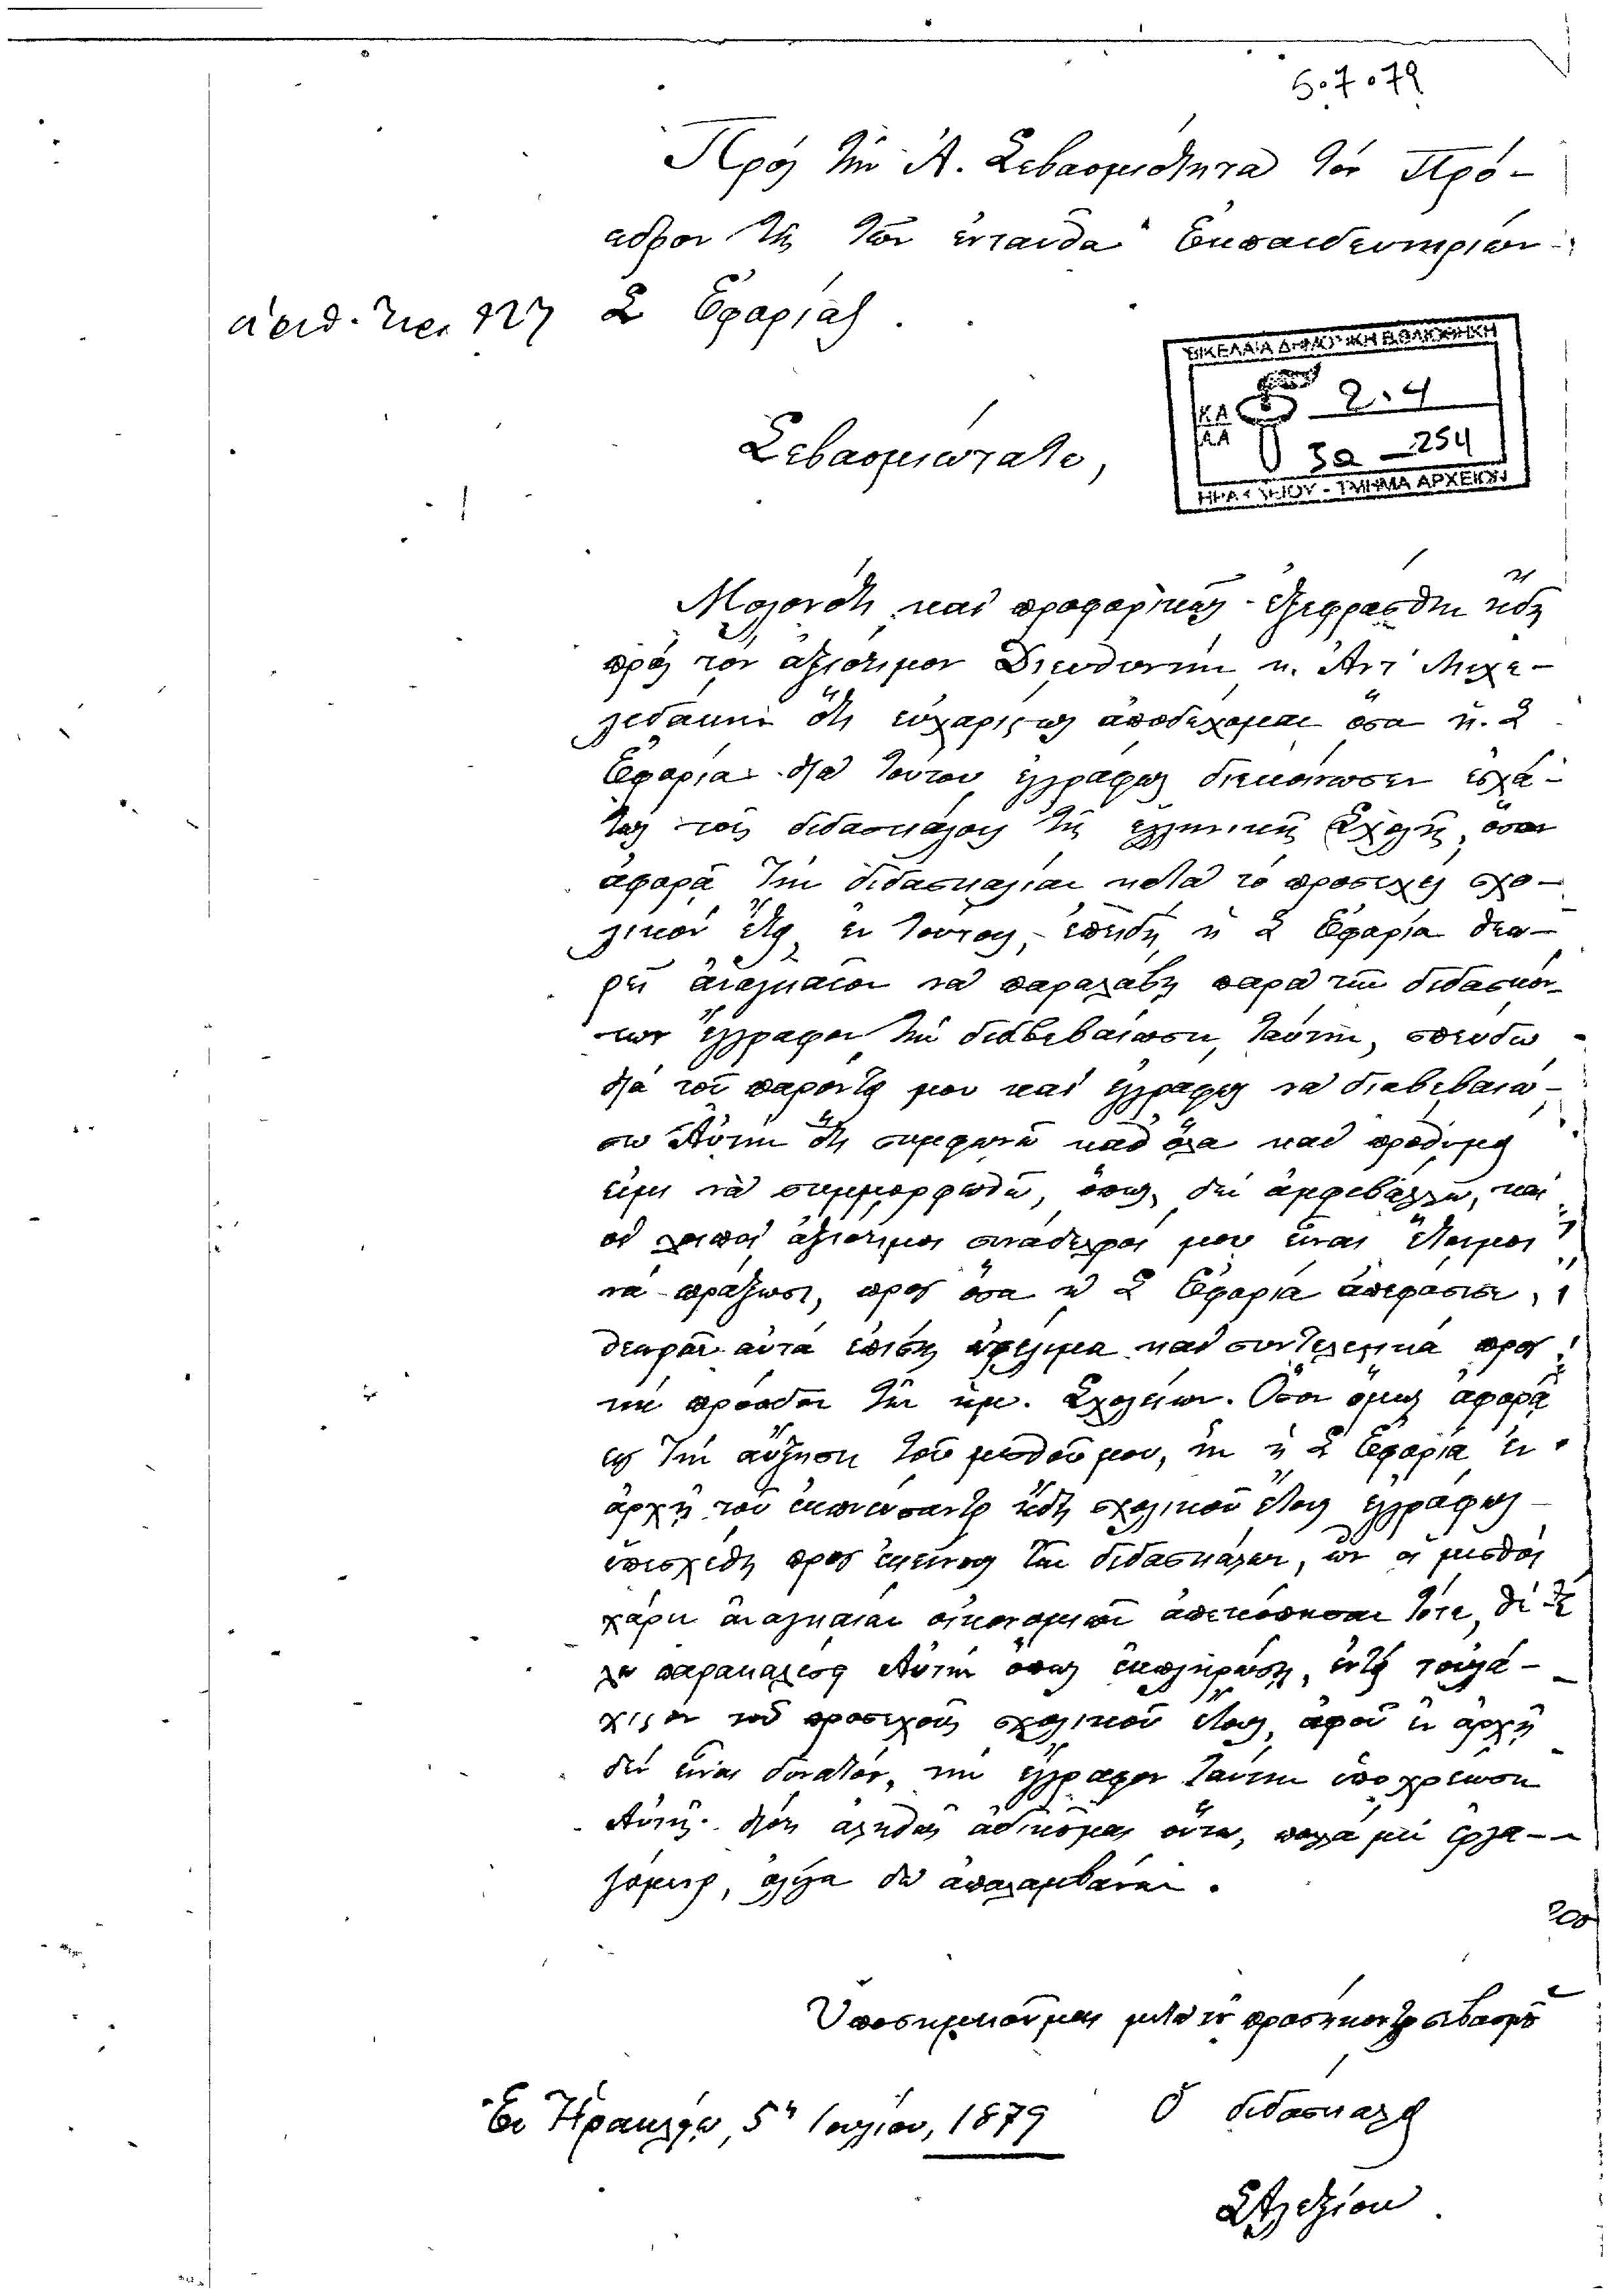 5.7.79
Πρὸς τὴν Α. Σεβασμιότητα τὸν Πρό-
εδρον τῆς τῶν ἐνταῦθα Ἐκπαιδευτηρίων
ἀριθ. πρ. 127 Σ Ἐφορίας.
ΒΙΚΕΛΑΙΑ ΔΗΜΟΤΙΚΗ ΒΙΒΛΙΟΘΗΚΗ
ΚΑ 2.4
Α.Α 3α-254
ΗΡΑΚΛΕΙΟΥ - ΤΜΗΜΑ ΑΡΧΕΙΩΝ
Σεβασμιώτατε,
Μολονότι καὶ προφορικῶς ἐξεφράσθην ἤδη
πρὸς τὸν ἀξιότιμον Διευθυντὴν κ. Ἀντ. Μιχε-
λιδάκην ὅτι εὐχαρίστως ἀποδέχομαι ὅσα ἡ Σ
Ἐφορία διὰ τούτου ἐγγράφως διεκοίνωσεν ἐσχά-
τως τοῖς διδασκάλοις τῆς ἑλληνικῆς Σχολῆς, ὅσον
ἀφορᾷ τὴν διδασκαλίαν κατὰ τὸ προσεχὲς σχο-
λικὸν ἔτος, ἐν τούτοις, ἐπειδὴ ἡ Σ Ἐφορία θεω-
ρεῖ ἀναγκαῖον νὰ παραλάβῃ παρὰ τῶν διδασκόν-
των ἔγγραφον τὴν διαβεβαίωσιν ταύτην, σπεύδω
διὰ τοῦ παρόντος μου καὶ ἐγγράφως νὰ διαβεβαιώ-
σω Αὐτὴν ὅτι συμφωνῶ καθ' ὅλα καὶ πρόθυμος
εἶμαι νὰ συμμορφωθῶ, ὅπως, δὲν ἀμφιβάλλω, καὶ
οἱ λοιποὶ ἀξιότιμοι συνάδελφοί μου εἶναι ἕτοιμοι
νὰ πράξωσι, πρὸς ὅσα ἡ Σ Ἐφορία ἀπεφάσισε,
θεωρῶν αὐτὰ ἐπίσης ὠφέλιμα καὶ συντελεστικὰ πρὸς
τὴν πρόοδον τῶν ἡμ. Σχολείων. Ὅσον ὅμως ἀφορᾷ
εἰς τὴν αὔξησιν τοῦ μισθοῦ μου, ἣν ἡ Σ Ἐφορία ἐν
ἀρχῇ τοῦ ἐκπνεύσαντος ἤδη σχολικοῦ ἔτους ἐγγράφως
ὑπεσχέθη πρὸς ἐκείνους τῶν διδασκάλων, ὧν οἱ μισθοὶ
χάριν ἀναγκαίας οἰκονομίας ἀπεκόπησαν τότε, θέ-
λω παρακαλέσῃ Αὐτὴν ὅπως ἐκπληρώσῃ, ἐντὸς τοὐλά-
χιστον τοῦ προσεχοῦς σχολικοῦ ἔτους, ἀφοῦ ἐν ἀρχῇ
δὲν εἶναι δυνατόν, τὴν ἔγγραφον ταύτην ὑποχρέωσιν
Αὐτῆς· διότι ἀληθῶς ἀδικοῦμαι οὕτω, πολλὰ μὲν ἐργα-
ζόμενος, ὀλίγα δὲ ἀπολαμβάνων.
Ὑποσημειοῦμαι μετὰ τοῦ προσήκοντος σεβασμοῦ
Ἐν Ἡρακλείῳ, 5ῃ Ἰουλίου, 1879 Ὁ διδάσκαλος
ΣΑλεξίου